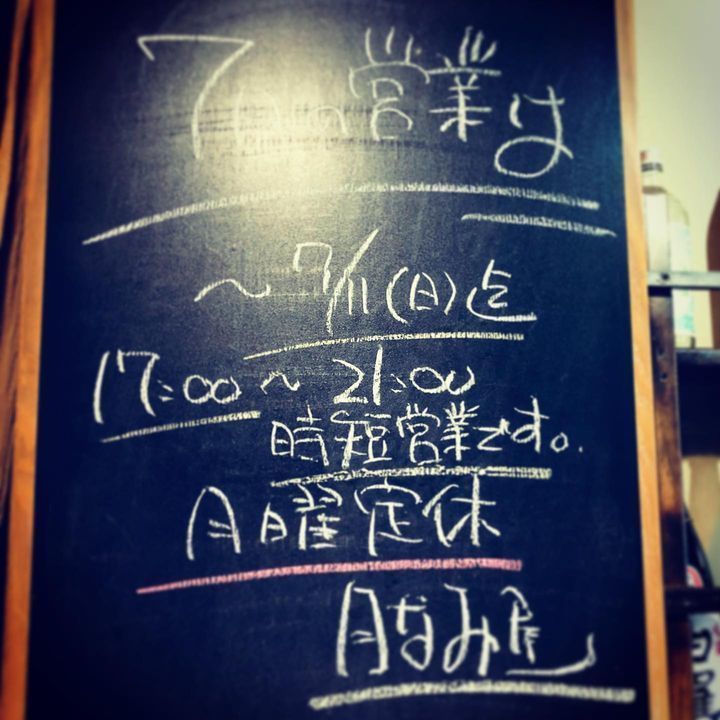 7月の営業は
〜7/11(日)迄
17:00〜21:00
時短営業です。
月曜定休
月なみ屋